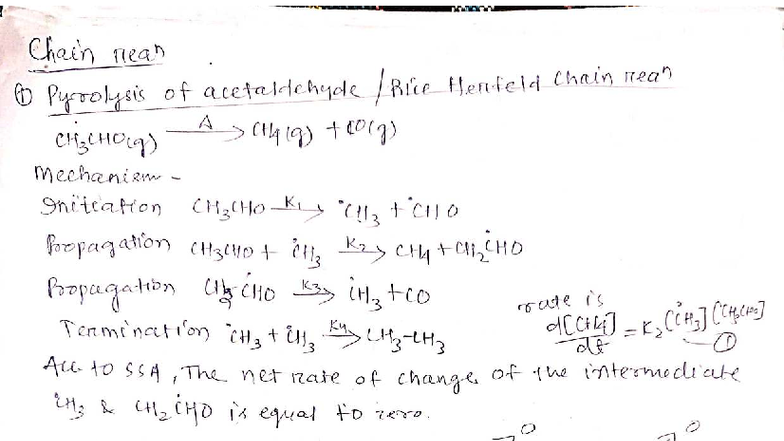 Chain rean
① Pyrolysis of acetaldehyde / Rice Herzfeld Chain rean
CH3CHO(g) —Δ→ CH4(g) + CO(g)
Mechanism -
Initiation CH3CHO —K1→ •CH3 + •CHO
Propagation CH3CHO + ĊH3 —K2→ CH4 + CH2ĊHO
Propagation CH2ĊHO —K3→ ĊH3 + CO
rate is
Termination •CH3 + ĊH3 —K4→ CH3-CH3
d[CH4]/dt = K2[ĊH3][CH3CHO] —①
Acc to SSA, The net rate of change of the intermediate
ĊH3 & CH2ĊHO is equal to zero.